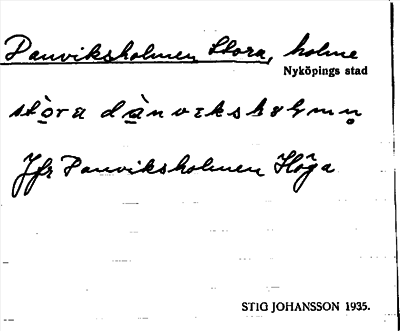 Danviksholmen Stora, holme
Nyköpings stad
stora dànvɩkshɷlmn̥
Jfr Danviksholmen Höga
STIG JOHANSSON 1935.